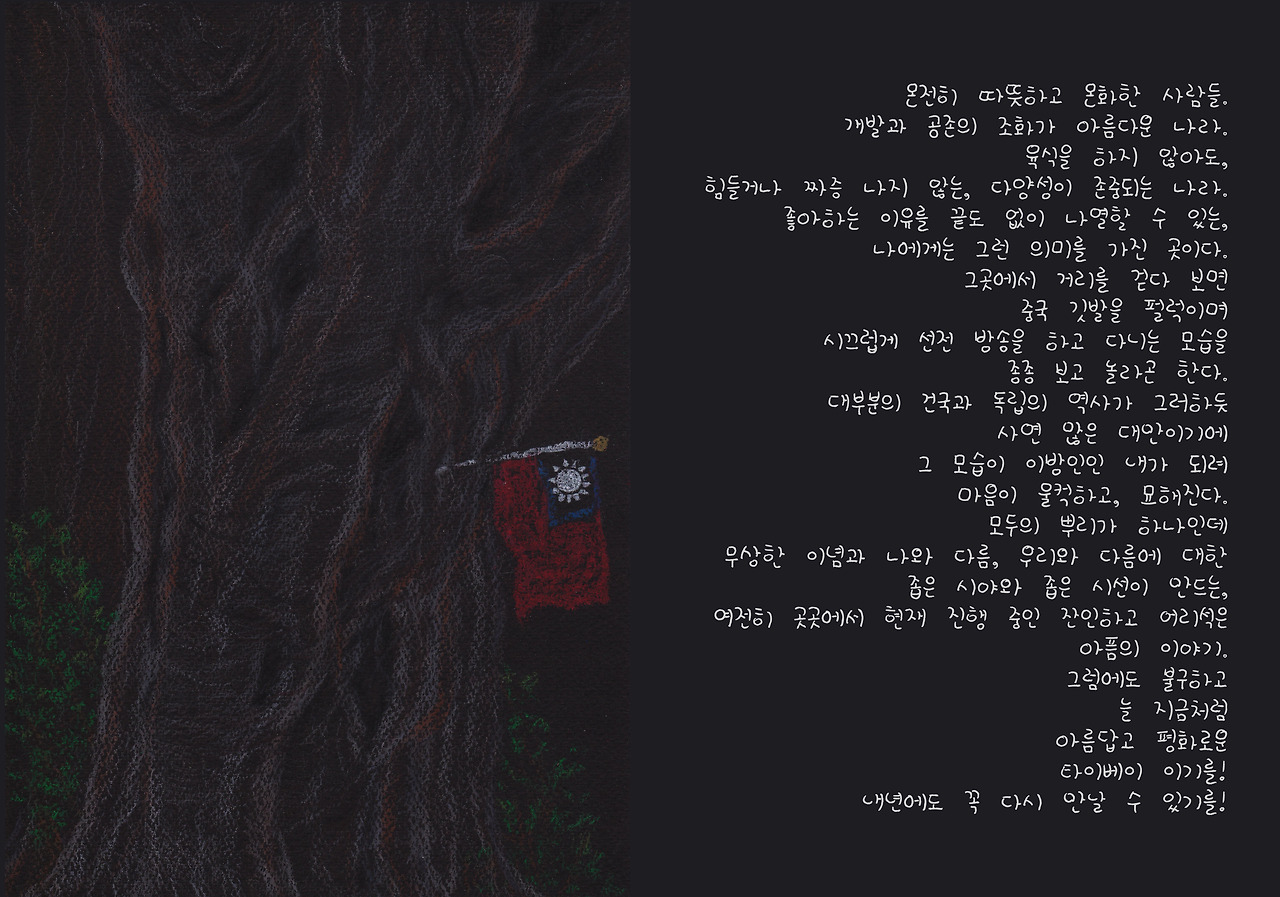 온전히 따뜻하고 온화한 사람들.
개발과 공존의 조화가 아름다운 나라.
육식을 하지 않아도,
힘들거나 짜증 나지 않는, 다양성이 존중되는 나라.
좋아하는 이유를 끝도 없이 나열할 수 있는,
나에게는 그런 의미를 가진 곳이다.
그곳에서 거리를 걷다 보면
중국 깃발을 펄럭이며
시끄럽게 선전 방송을 하고 다니는 모습을
종종 보고 놀라곤 한다.
대부분의 건국과 독립의 역사가 그러하듯
사연 많은 대만이기에
그 모습이 이방인인 내가 되려
마음이 울컥하고, 묘해진다.
모두의 뿌리가 하나인데
무상한 이념과 나와 다름, 우리와 다름에 대한
좁은 시야와 좁은 시선이 만드는,
여전히 곳곳에서 현재 진행 중인 잔인하고 어리석은
아픔의 이야기.
그럼에도 불구하고
늘 지금처럼
아름답고 평화로운
타이베이 이기를!
내년에도 꼭 다시 만날 수 있기를!